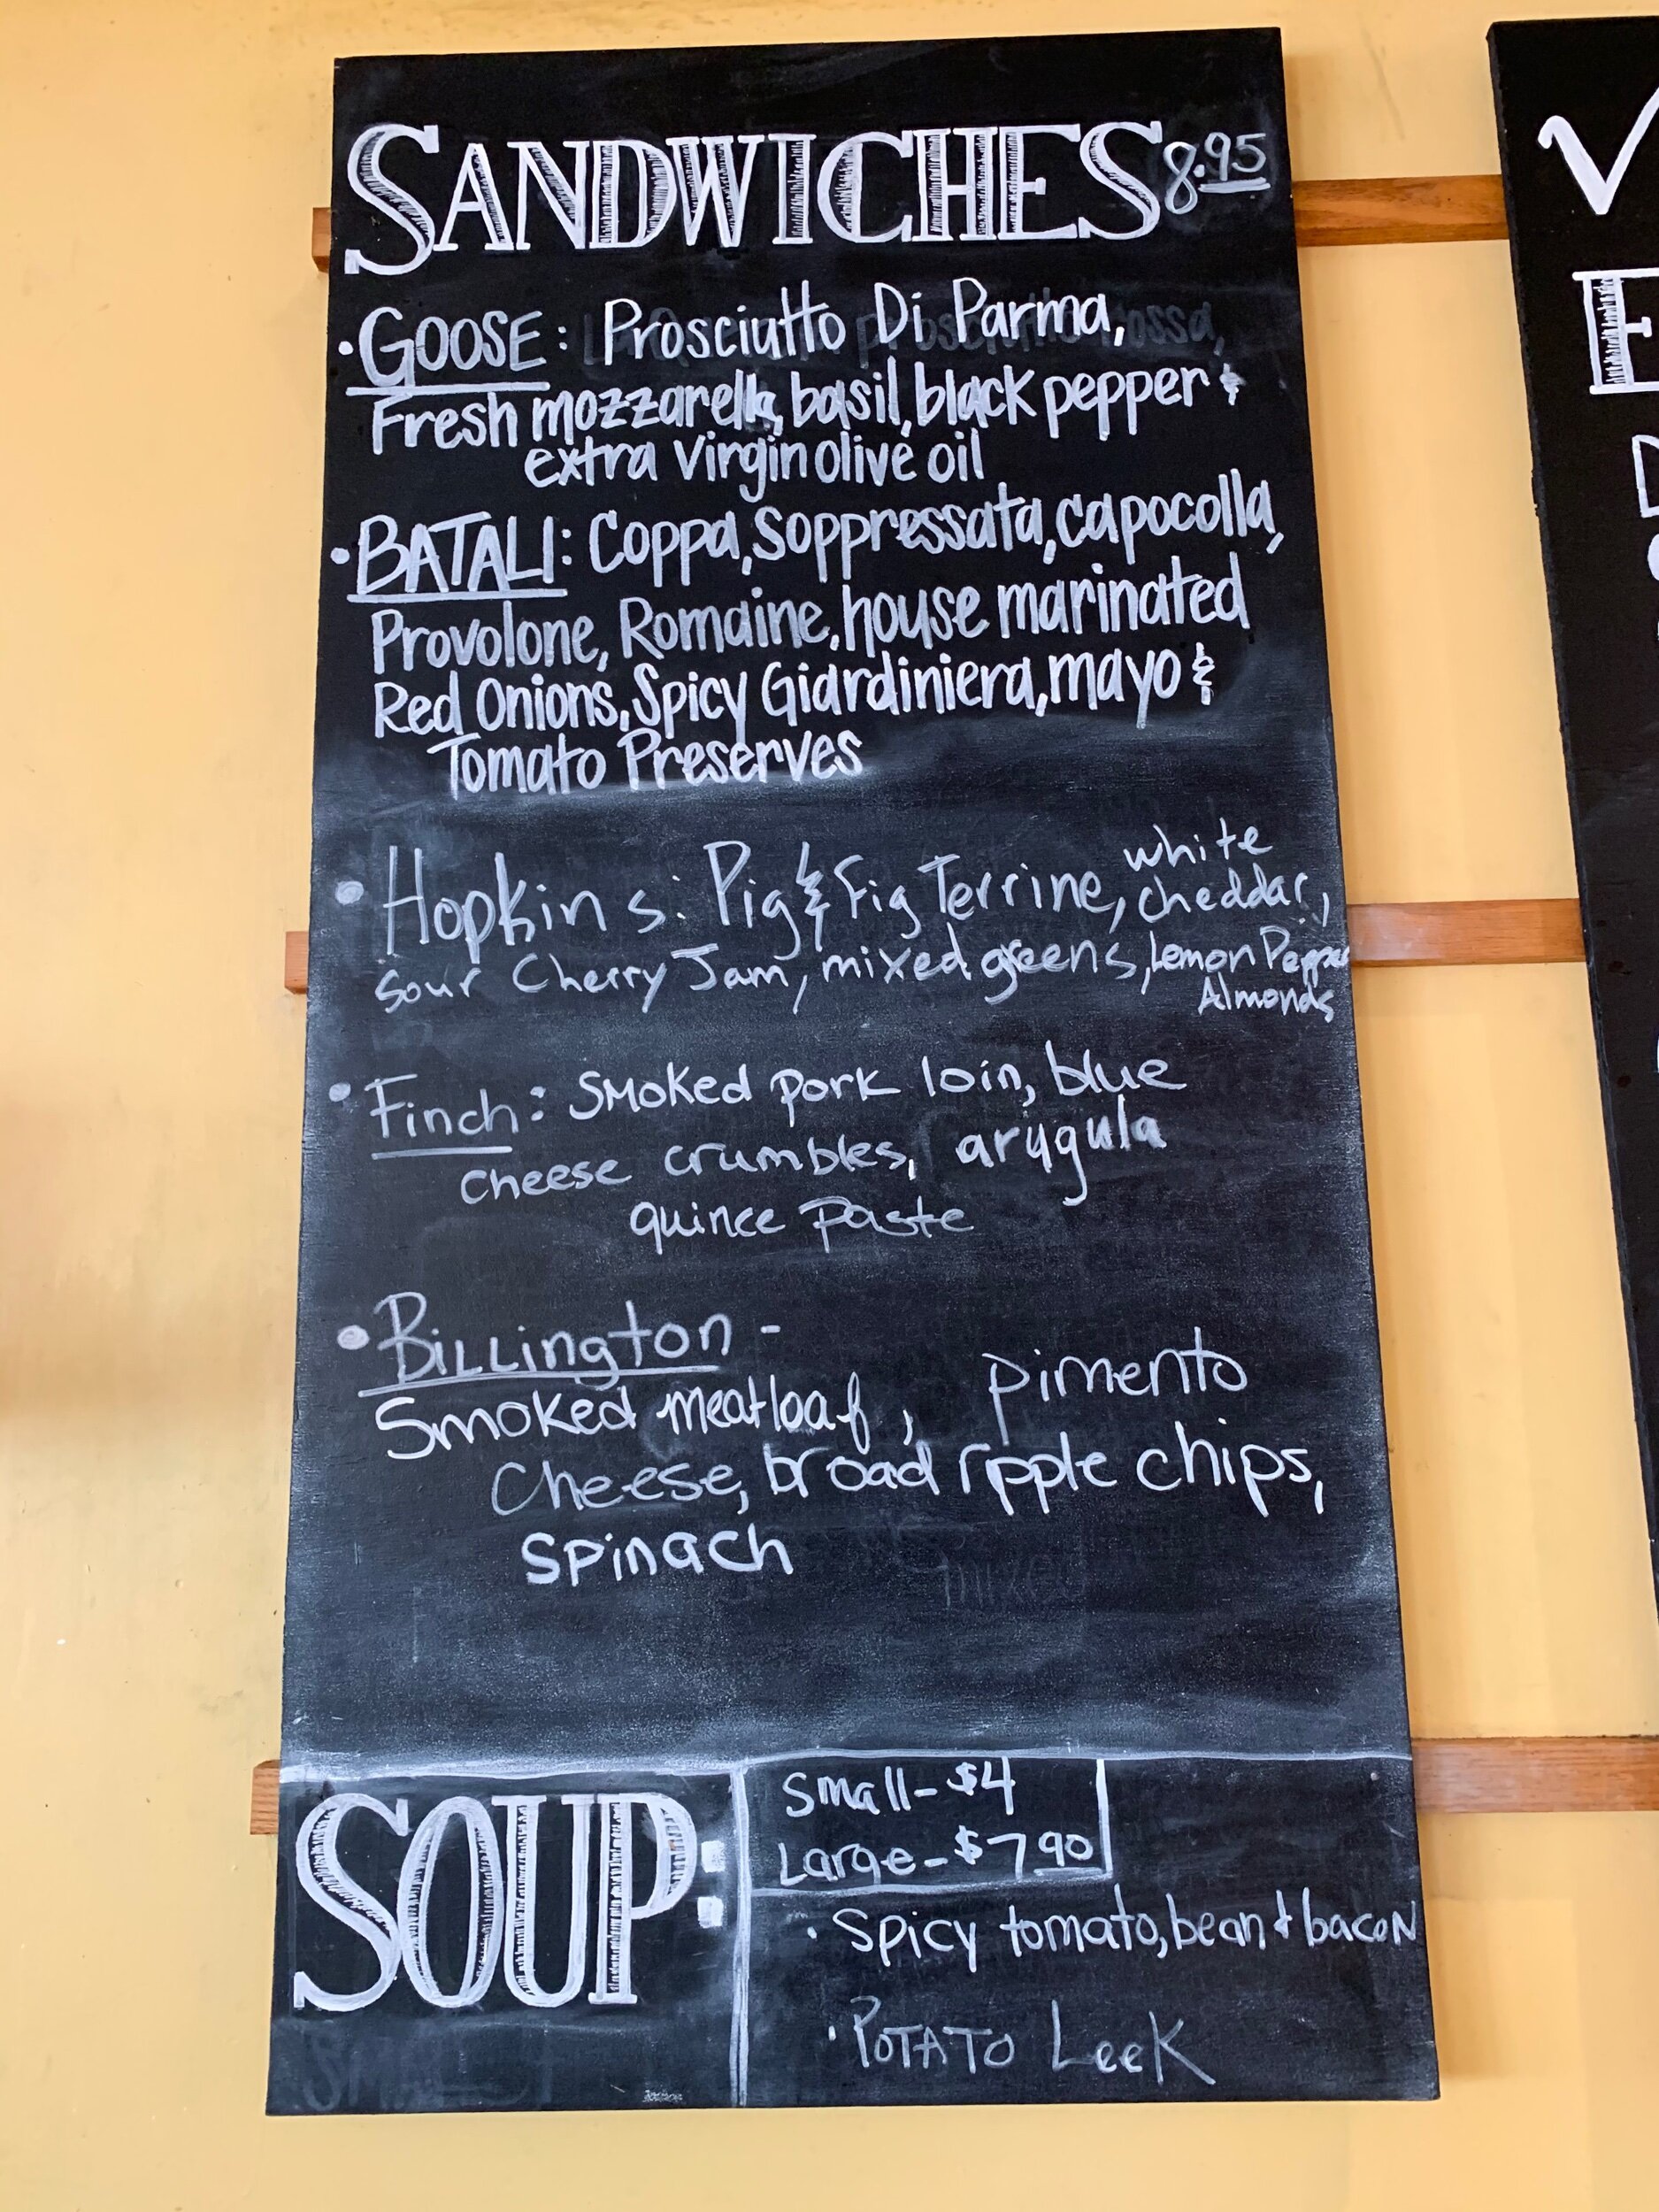 SANDWICHES 8.95
• GOOSE: Prosciutto Di Parma,
Fresh mozzarella, basil, black pepper &
extra Virgin olive oil
• BATALI: Coppa, Soppressata, capocolla,
Provolone, Romaine, house marinated
Red Onions, Spicy Giardiniera, mayo &
Tomato Preserves
• Hopkins: Pig & Fig Terrine, white
cheddar,
Sour Cherry Jam, mixed greens, Lemon Pepper
Almonds
• Finch: Smoked pork loin, blue
cheese crumbles, arugula
quince paste
• Billington -
Smoked meatloaf, pimento
Cheese, broad ripple chips,
spinach
SOUP:
Small - $4
Large - $7 90
• Spicy tomato, bean & bacon
• POTATO LeeK